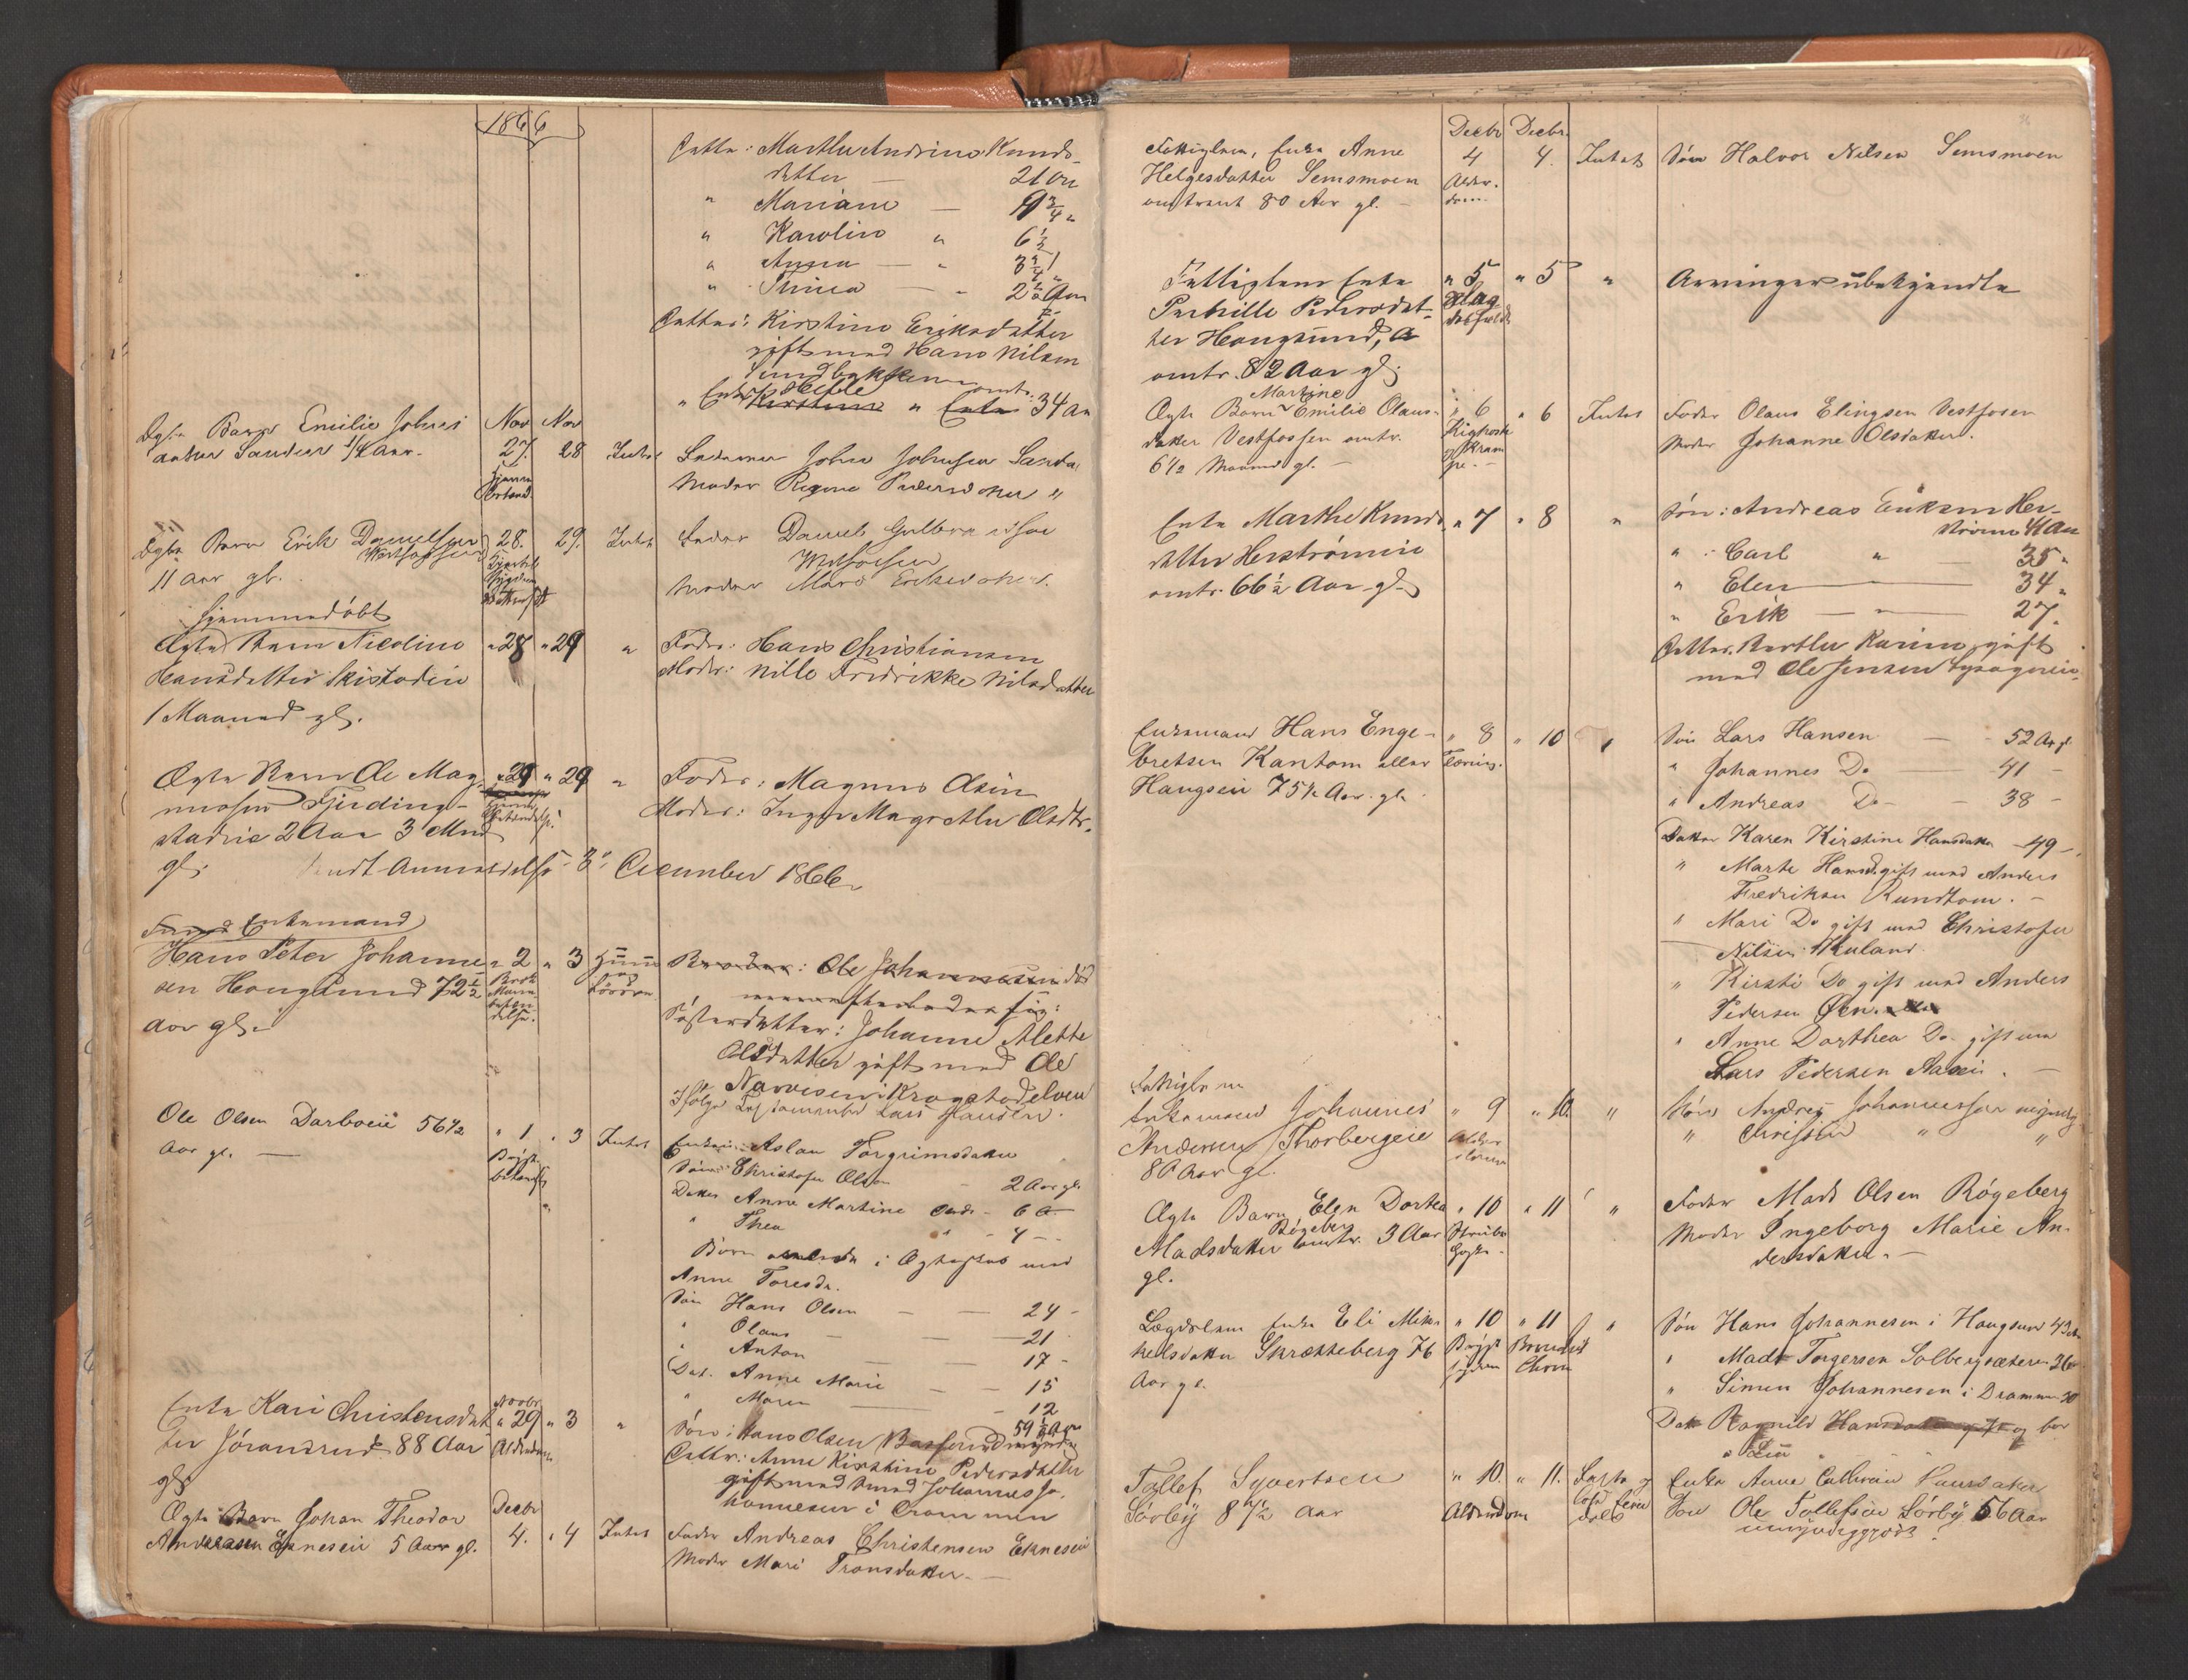 1866
Datter: Marthe Andrine Knuds-
datter — 21 Aar
" Mariane — 9 3/4 "
" Karoline " 6 1/2
" Anna — " 3 1/4 "
" Thina — " 2 1/2 Aar
Datter: Kirstine Eriksdatter
gift med Hans Nilsen
Sundbakken
" Enke Helle omtr. 34 Aar
Ægte Barn Emilie Johns
datter Sanden 1/4 Aar.
Nov Nov
27. 28 Intet
Faderen John Johnsen Sanden
Moder Regine Pedersdatter "
Ægte Barn Erik Danielsen
Westfossen
11 Aar gl.
28. 29. Intet
Fader Daniel Gulbrandsen
Westfossen
Moder Mari Eriksdatter.
Hjemmedøbt
Ægte Barn Nicoline
Hansdatter Skistadeie
1 Maaned gl.
" 28 " 29 "
Fader: Hans Christiansen
Moder: Nille Fredrikke Nilsdatter
Ægte Barn Ole Mag-
nussen Fjerding-
stadeie 2 Aar 3 Mnd
gl.
" 29 " 29 "
Fader: Magnus Olsen
Moder: Inger Magrethe Olsdtr.
sendt Anmeldelse 3. December 1866
Enkemand
Hans Peter Johanne-
sen Hougsund 72 1/2
Aar gl.
" 2 " 3
Broder: Ole Johannesen død
Søsterdatter: Johanne Alette
Olsdatter gift med Ole
Narvesen Krogstadelven
Ifølge Testamente Lars Hansen.
Ole Olsen Darboeie 56 1/2
Aar gl. —
" 1 " 3 Intet
Bryst-
betændelse
Enken: Aslau Torgrimsdatter
Søn: Christofer Olsen 2 Aar gl.
Datter Anne Martine Olsdr - 6 Aar
" Thea " - 4 -
Børn avlede i Ægteskab med
Anne Toresdr.
Søn Hans Olsen — — 24 -
" Olaus — — 21
" Anton — — 17 -
Dat. Anne Marie — — 15
" Maren 12
Enke Kari Christensdat-
ter Jørandrud 88 Aar
gl.
Novbr
" 29 " 3 "
Alderdom
Søn: Hans Olsen 59 1/2 Aar
Datter: Anne Kirstine Pedersdatter
gift med Knud Johannes Jo-
hannesen i Drammen
Ægte Barn Johan Theodor
Andreasen Ekneseie 5 Aar gl.
Decbr
4. " 4 Intet
Fader Andreas Christensen Ekneseie
Moder Mari Tronsdatter. —
Decbr Decbr.
Fattiglem, Enke Anne
Helgesdatter Semsmoen
omtrent 80 Aar gl. —
4 4. Intet
Alder-
dom
Søn Halvor Nilsen Semsmoen
Fattiglem Enke
Pernille Pedersdat-
ter Hougsund,
omtr. 82 Aar gl.
" 5 " 5 "
Slag-
tilfælde
Arvinger ubekjendte
Martine
Ægte Barn Emilie Olaus-
datter Vestfossen omtr.
6 1/2 Maaned gl. —
" 6 " 6 Intet
Kighoste
og Kram-
pe. —
Fader Olaus Elingsen Vestfossen
Moder Johanne Olsdatter.
Enke Marthe Knuds-
datter Herstrømeie
omtr. 66 1/2 Aar gl.
" 7 " 8 "
Søn: Andreas Eriksen Her-
strøm 41 Aar
" : Carl " — 35 "
" Elen — 34 "
" Erik — " — 27 "
Datter, Berthe Karine, gift
med Ole Jensen
Enkemand Hans Enge-
bretsen Kantom eller
Haugseie 75 1/2 Aar gl.
" 8 " 10 "
Tæring.
Søn Lars Hansen — 52 Aar gl.
" Johannes Do — 41 —
" Andreas Do — — 38 —
Datter Karen Kirstine Hansdatter — 49 —
" Marte Hansd. gift med Anders
Fredriksen Rundtom. —
" Mari Do gift med Christofer
Nilsen
" Kirsti Do gift med Anders
Pedersen Øen.
" Anne Dorthea Do gift med
Lars Pedersen Aaseie. —
Fattiglem
Enkemand Johannes
Andersen Thorbergeie
80 Aar gl.
" 9 " 10. "
Alder-
dom
Søn Anders Johannessen myndig
" Christen " "
Ægte Barn Elen Dorthea
Røgeberg
Madsdatter omtr. 3 Aar
gl.
" 10 " 11 "
Strube-
hoste.
Fader Mads Olsen Røgeberg
Moder Ingeborg Marie An-
dersdatter. —
Lægdslem Enke Eli Mik-
kelsdatter Skrætteberg 76
Aar gl.
" 10 " 11 "
Bryst-
sygdom
Søn Hans Johannesen i Hougsund 43 Aar
" Mads Torgersen Solbergsæteren 36
" Simen Johannesen i Drammen 30
Datt Ragnild Hansdatter gift og bor
i Lier
Tollef Syvertsen
Sørby 81 1/2 Aar
" 10. " 11.
Alderdom
Enke Anne Cathrine Laursdatter
Søn Ole Tollefsen Sørby 56 Aar
umyndiggjort?